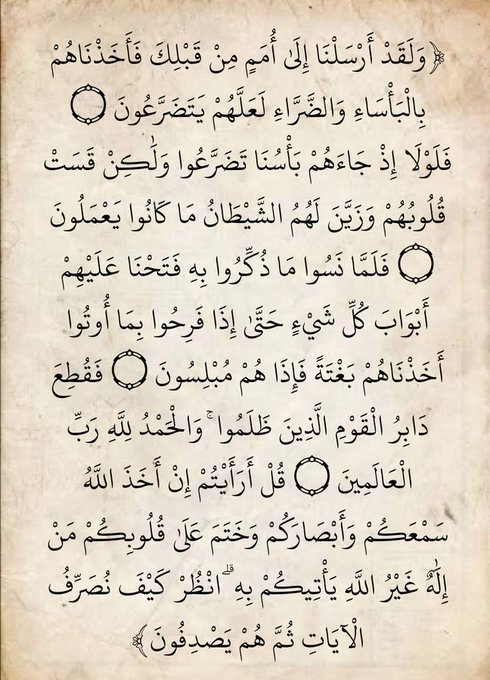 ﴿وَلَقَدْ أَرْسَلْنَا إِلَىٰ أُمَمٍ مِنْ قَبْلِكَ فَأَخَذْنَاهُمْ
بِالْبَأْسَاءِ وَالضَّرَّاءِ لَعَلَّهُمْ يَتَضَرَّعُونَ ۝
فَلَوْلَا إِذْ جَاءَهُمْ بَأْسُنَا تَضَرَّعُوا وَلَٰكِنْ قَسَتْ
قُلُوبُهُمْ وَزَيَّنَ لَهُمُ الشَّيْطَانُ مَا كَانُوا يَعْمَلُونَ
۝ فَلَمَّا نَسُوا مَا ذُكِّرُوا بِهِ فَتَحْنَا عَلَيْهِمْ
أَبْوَابَ كُلِّ شَيْءٍ حَتَّىٰ إِذَا فَرِحُوا بِمَا أُوتُوا
أَخَذْنَاهُمْ بَغْتَةً فَإِذَا هُمْ مُبْلِسُونَ ۝ فَقُطِعَ
دَابِرُ الْقَوْمِ الَّذِينَ ظَلَمُوا ۚ وَالْحَمْدُ لِلَّهِ رَبِّ
الْعَالَمِينَ ۝ قُلْ أَرَأَيْتُمْ إِنْ أَخَذَ اللَّهُ
سَمْعَكُمْ وَأَبْصَارَكُمْ وَخَتَمَ عَلَىٰ قُلُوبِكُمْ مَنْ
إِلَٰهٌ غَيْرُ اللَّهِ يَأْتِيكُمْ بِهِ ۗ انْظُرْ كَيْفَ نُصَرِّفُ
الْآيَاتِ ثُمَّ هُمْ يَصْدِفُونَ﴾